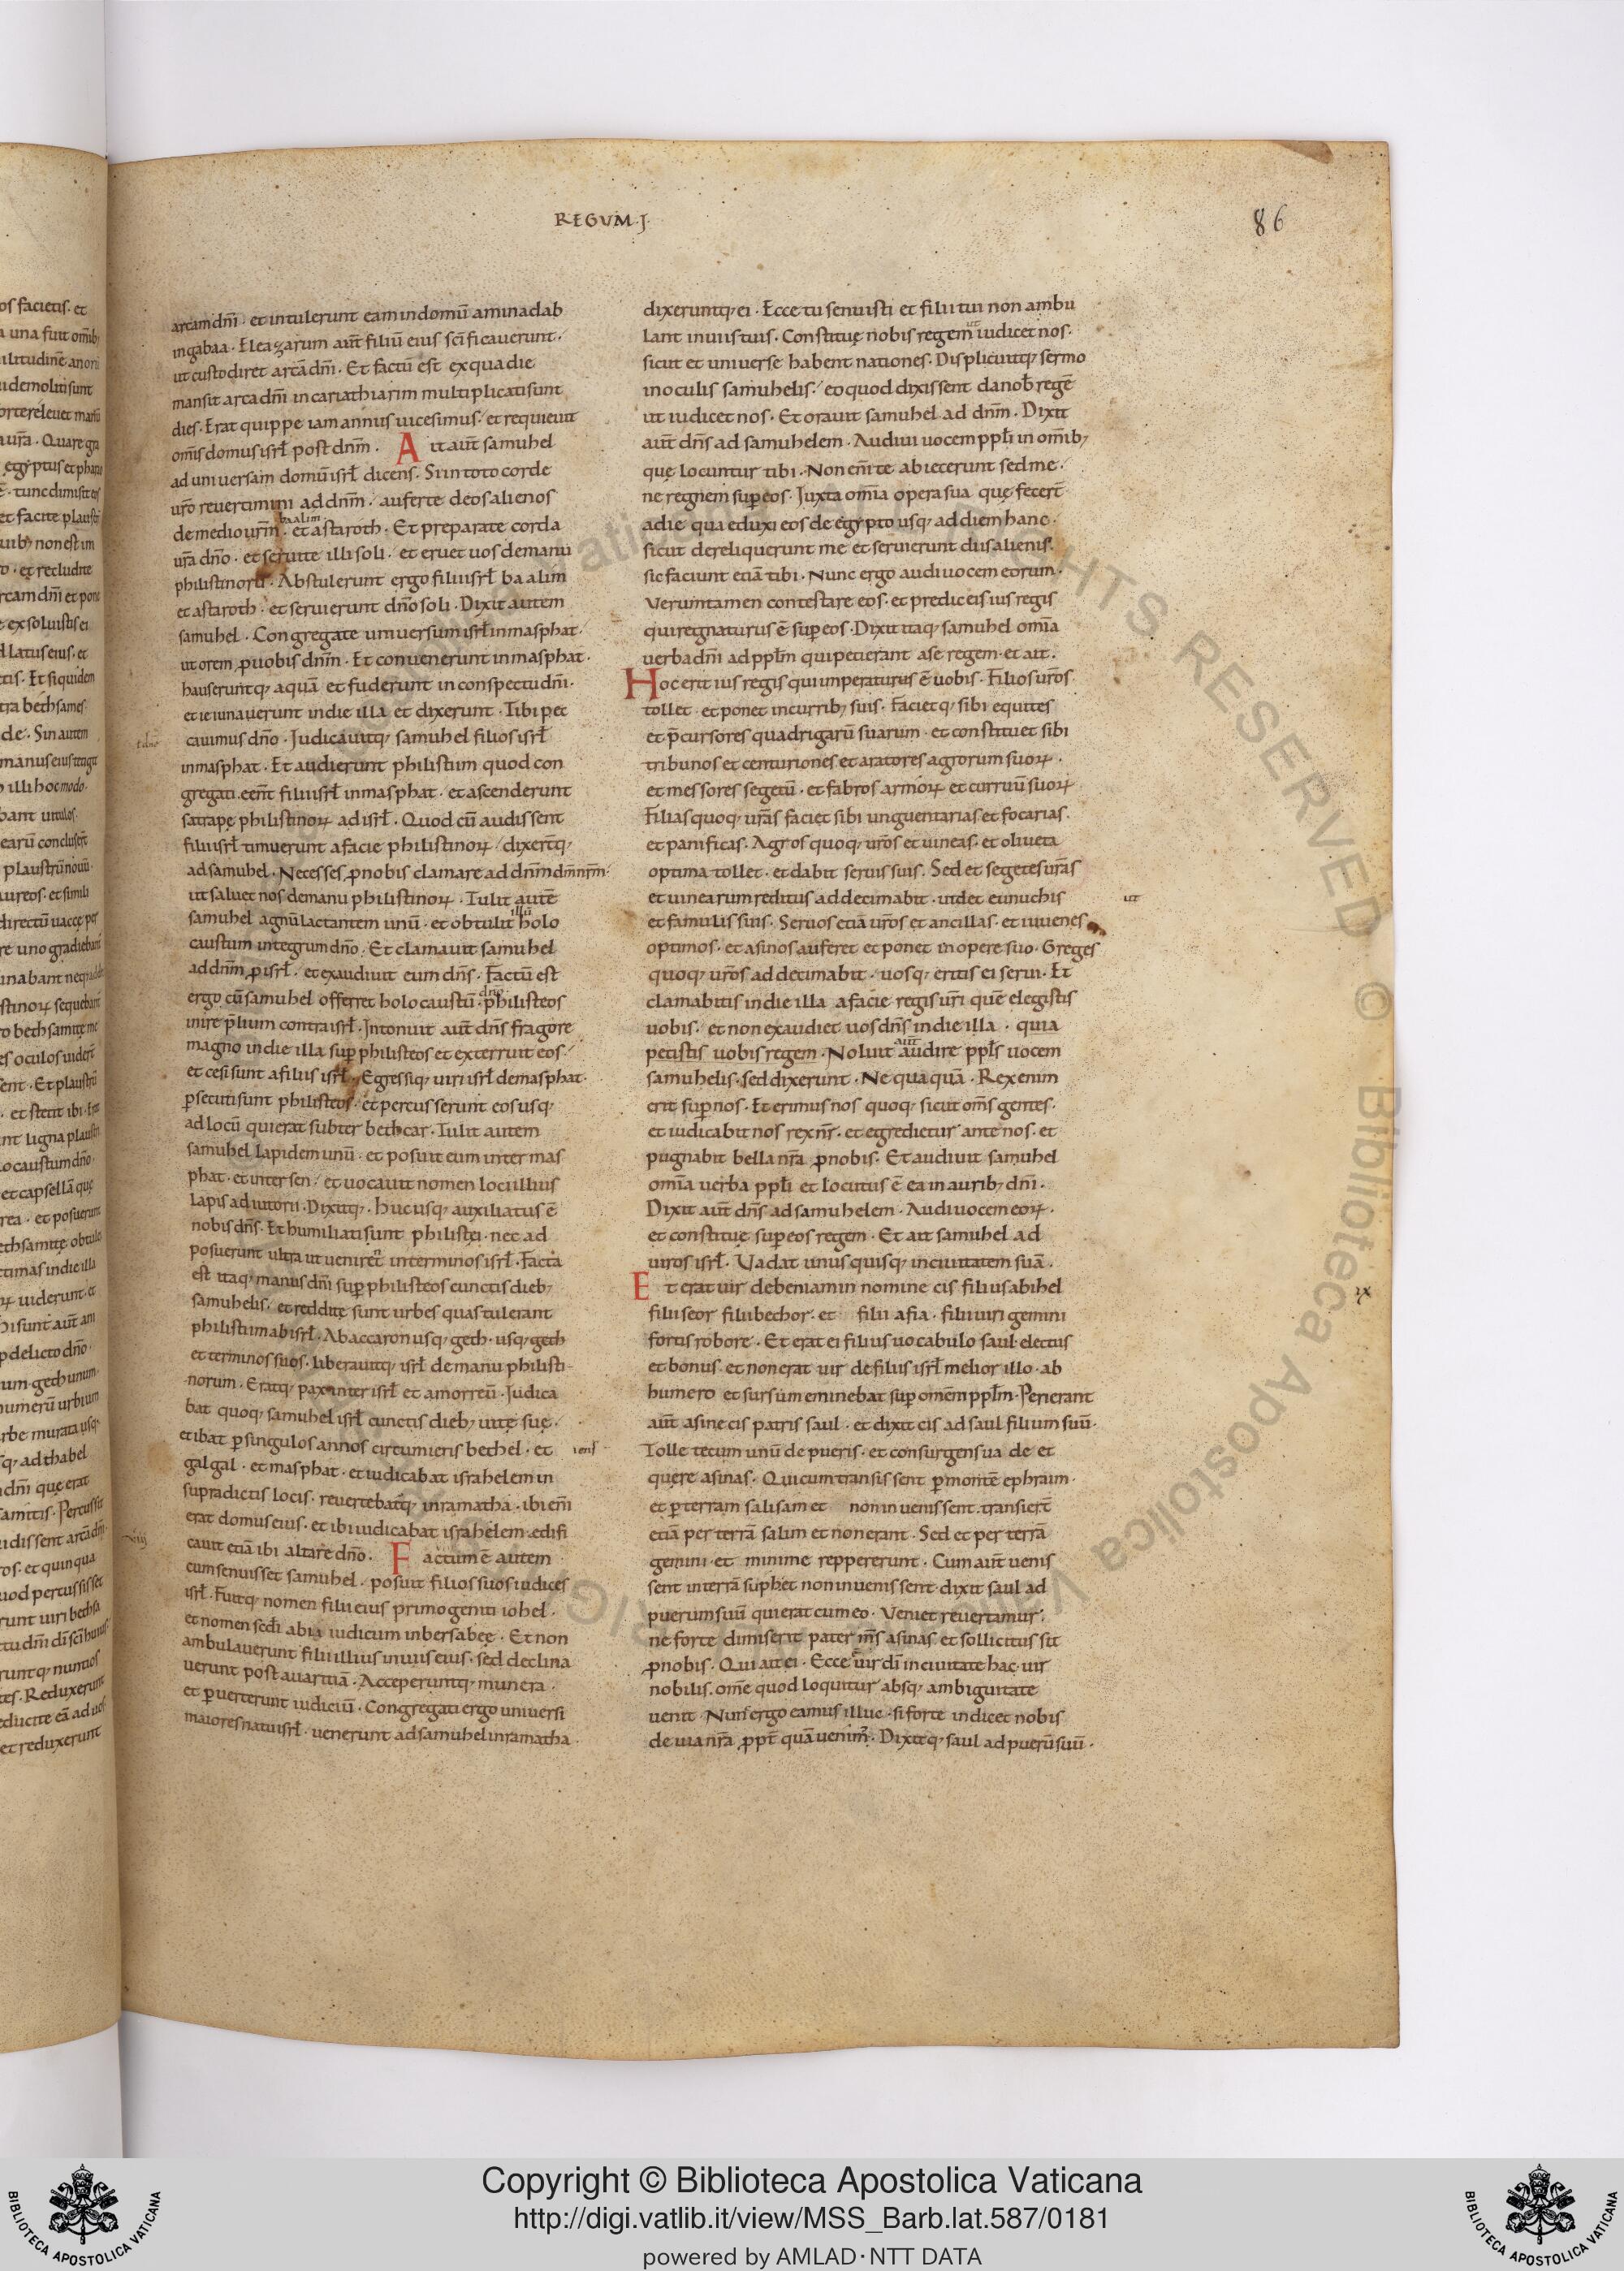 REGUM·I·
86
arcam dnī · et intulerunt eam in domū aminadab
in gabaa · Eleazarum aut̄ filiū eius scīficaverunt ·
ut custodiret arcā dnī · Et factū est ex qua die
mansit arca dnī in cariathiarim multiplicati sunt
dies · Erat quippe iam annus vicesimus · et requievit
om̄is domus isrł post dnm̄ · Ait aut̄ samuhel
ad universam domū isrł dicens · Si in toto corde
urō revertimini ad dnm̄ · auferte deos alienos
baalim
de medio urm̄ · et astaroth · Et preparate corda
urā dnō · et servite illi soli · et eruet vos de manu
philistinoꝝ · Abstulerunt ergo filii isrł baalim
et astaroth · et servierunt dnō soli · Dixit autem
samuhel · Congregate universum isrł in masphat ·
ut orem ꝓ vobis dnm̄ · Et convenerunt in masphat ·
hauseruntq; aquā et fuderunt in conspectu dnī ·
et ieiunaverunt in die illa et dixerunt · Tibi pec
cavimus dnō · Judicavitq; samuhel filios isrł
in masphat · Et audierunt philistiim quod con
gregati eent̄ filii isrł in masphat · et ascenderunt
satrapę philistinoꝝ ad isrł · Quod cū audissent
filii isrł timuerunt a facie philistinoꝝ · dixert̄q;
ad samuhel · Ne cesses ꝓ nobis clamare ad dnm̄ dm̄ nrm̄ ·
ut salvet nos de manu philistinoꝝ · Tulit autē
samuhel agnū lactantem unū · et obtulit illū holo
caustum integrum dnō · Et clamavit samuhel
ad dnm̄ ꝓ isrł · et exaudivit eum dns̄ · Factū est
ergo cū samuhel offerret holocaustū dnō · philisteos
inire p̄lium contra isrł · Intonuit aut̄ dns̄ fragore
magno in die illa suꝑ philisteos et exterruit eos ·
et cesi sunt a filiis isrł · Egressiq; viri isrł de masphat ·
ꝑsecuti sunt philisteos · et percusserunt eos usq;
ad locū qui erat subter bethcar · Tulit autem
samuhel lapidem unū · et posuit eum inter mas
phat · et inter sen · et vocavit nomen loci illius
lapis adiutorii · Dixitq; · hucusq; auxiliatus ē
nobis dns̄ · Et humiliati sunt philistei · nec ad
posuerunt ultra ut venirent in terminos isrł · Facta
est itaq; manus dnī suꝑ philisteos cunctis dieb;
samuhelis · et reddite sunt urbes quas tulerant
philistiim ab isrł · Ab accaron usq; geth · usq; geth
et terminos suos · liberavitq; isrł de manu philisti-
norum · Eratq; pax inter isrł et amorreū · Judica
bat quoq; samuhel isrł cunctis dieb; vitę suę ·
et ibat ꝑ singulos annos circumiens bethel · et
galgal · et masphat · et iudicabat israhelem in
supradictis locis · revertebat̄q; in ramatha · ibi eni̅
erat domus eius · et ibi iudicabat israhelem · edifi
cavit etiā ibi altare dnō · Factum ē autem
cum senuisset samuhel · posuit filios suos iudices
isrł · Fuitq; nomen filii eius primogeniti iohel ·
et nomen sedi̅ abia iudicum in bersabee · Et non
ambulaverunt filii illius in viis eius · sed declina
verunt post avaritiā · Acceperuntq; munera ·
et ꝑverterunt iudiciū · Congregati ergo universi
maiores natu isrł · venerunt ad samuhel in ramatha ·
dixeruntq; ei · Ecce tu senuisti et filii tui non ambu
lant in viis tuis · Constitue nobis regem ut iudicet nos ·
sicut et universe habent nationes · Displicuitq; sermo
in oculis samuhelis · eo quod dixissent da nob̄ regē
ut iudicet nos · Et oravit samuhel ad dnm̄ · Dixit
aut̄ dns̄ ad samuhelem · Audivi vocem ppłi in omīb;
quę locuntur tibi · Non eni̅ te abiecerunt sed me ·
ne regnem suꝑ eos · Juxta omīa opera sua quę fecert̄
a die qua eduxi eos de egypto usq; ad diem hanc ·
sicut dereliquerunt me et servierunt diis alienis ·
sic faciunt etiā tibi · Nunc ergo audi vocem eorum ·
Veruntamen contestare eos · et predic eis ius regis
qui regnaturus ē suꝑ eos · Dixit itaq; samuhel omīa
verba dnī ad ppłm qui petierant a se regem · et ait ·
Hoc erit ius regis qui imperaturus ē vobis · Filios uros̄
tollet · et ponet in currib; suis · Facietq; sibi equites
et p̄cursores quadrigarū suarum · et constituet sibi
tribunos et centuriones et aratores agrorum suoꝝ ·
et messores segetū · et fabros armoꝝ et curruū suoꝝ
Filias quoq; uras̄ faciet sibi unguentarias et focarias ·
et panificas · Agros quoq; uros̄ et vineas · et oliveta
optima tollet · et dabit servis suis · Sed et segetes uras̄
et vinearum reditus addecimabit · ut det eunuchis
et famulis suis · Servos etiā uros̄ et ancillas · et iuvenes
optimos · et asinos auferet et ponet in opere suo · Greges
quoq; uros̄ addecimabit · vosq; eritis ei servi · Et
clamabitis in die illa a facie regis uri̅ quē elegistis
vobis · et non exaudiet vos dns̄ in die illa · quia
petistis vobis regem · Noluit aut̄ audire ppłs vocem
samuhelis · sed dixerunt · Nequaquā · Rex enim
erit suꝑ nos · Et erimus nos quoq; sicut oms̄ gentes ·
et iudicabit nos rex nr̄ · et egredietur ante nos · et
pugnabit bella nrā ꝓ nobis · Et audivit samuhel
omīa verba ppłi et locutus ē ea in aurib; dnī ·
Dixit aut̄ dns̄ ad samuhelem · Audi vocem eoꝝ ·
et constitue suꝑ eos regem · Et ait samuhel ad
viros isrł · Vadat unusquisq; in civitatem suā ·
Et erat vir de beniamin nomine cis filius abihel
filii seor filii bechor · et filii afia · filii viri gemini
fortis robore · Et erat ei filius vocabulo saul · electus
et bonus · et non erat vir de filiis isrł melior illo · ab
humero et sursum eminebat suꝑ omēm ppłm · Perierant
aut̄ asine cis patris saul · et dixit cis ad saul filium suū ·
Tolle tecum unū de pueris · et consurgens vade et
quere asinas · Qui cum transissent ꝑ montē ephraim ·
et ꝑ terram salisam et non invenissent · transiert̄
etiā per terrā salim et non erant · Sed et per terrā
gemini · et minime reppererunt · Cum aut̄ venis
sent in terrā suph et non invenissent · dixit saul ad
puerum suū qui erat cum eo · Veni et revertamur ·
ne forte dimiserit pater ms̄ asinas et sollicitus sit
ꝓ nobis · Qui ait ei · Ecce vir di̅ in civitate hac · vir
nobilis · omē quod loquitur absq; ambiguitate
venit · Nunc ergo eamus illuc · si forte indicet nobis
de via nrā ꝓpt̄ quā venim; · Dixitq; saul ad puerū suū ·
iens
ut
ix
BIBLIOTECA APOSTOLICA VATICANA
Copyright © Biblioteca Apostolica Vaticana
http://digi.vatlib.it/view/MSS_Barb.lat.587/0181
powered by AMLAD·NTT DATA
BIBLIOTECA APOSTOLICA VATICANA